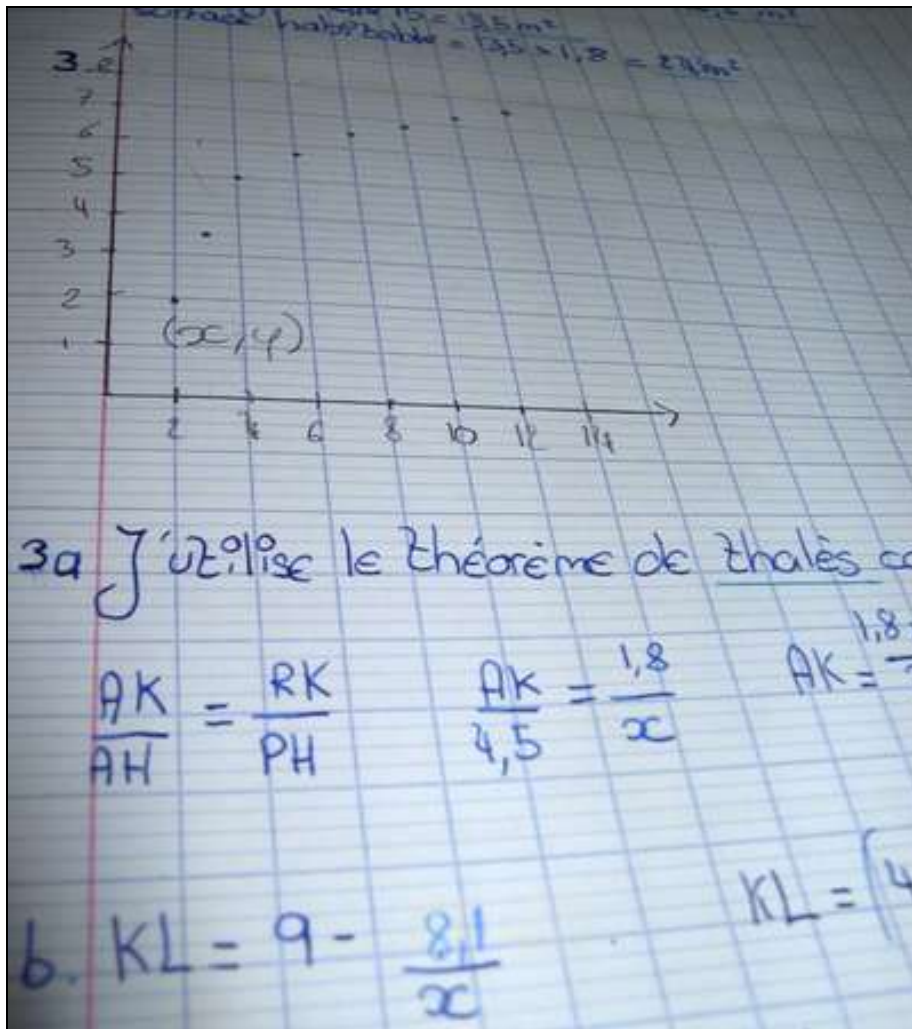 = 13,5 m²
habitable = 13,5 × 1,8 = 24,3 m²
3
7
6
5
4
3
2
1
(x, y)
2 4 6 8 10 12 14
3a J'utilise le théorème de thalès
AK/AH = RK/PH AK/4,5 = 1,8/x AK = 1,8
b. KL = 9 - 8,1/x KL = (4